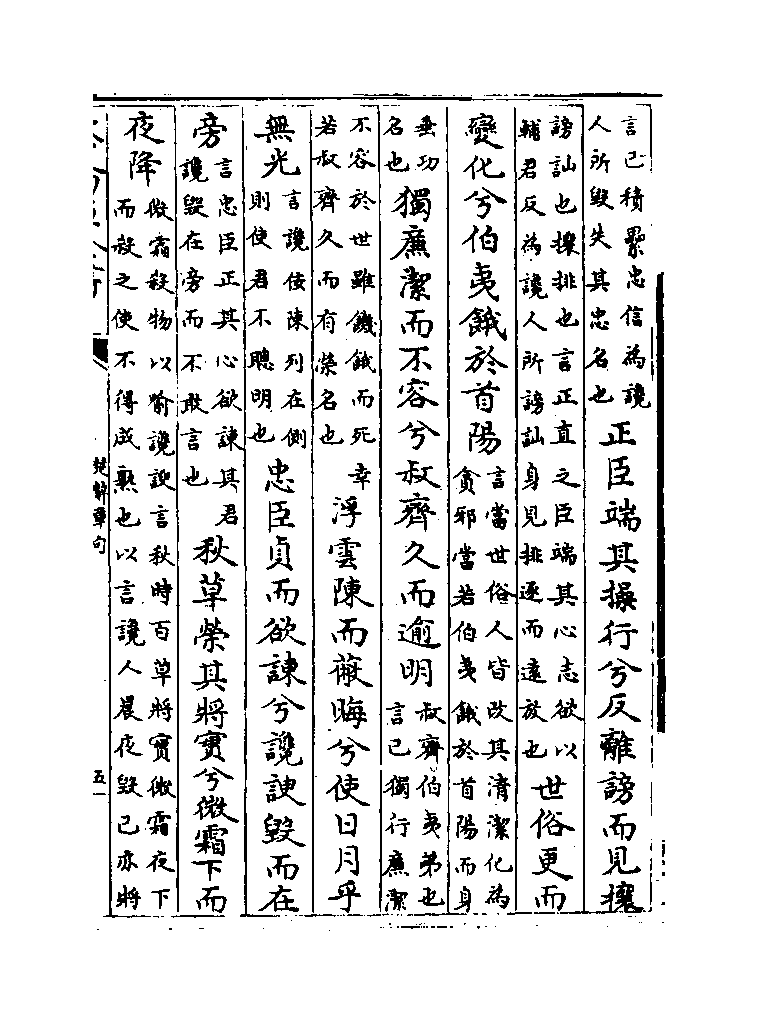 言己積累忠信為讒
人所毀失其忠名也
正臣端其操行兮反離謗而見攘
謗訕也攘排也言正直之臣端其心志欲以
輔君反為讒人所謗訕身見排逐而遠放也
世俗更而
變化兮伯夷餓於首陽
言當世俗人皆改其清潔化為
貪邪當若伯夷餓於首陽而身
垂功
名也
獨廉潔而不容兮叔齊久而逾明
叔齊伯夷弟也
言己獨行廉潔
不容於世雖饑餓而死幸
若叔齊久而有榮名也
浮雲陳而蔽晦兮使日月乎
無光
言讒佞陳列在側
則使君不聰明也
忠臣貞而欲諫兮讒諛毀而在
旁
言忠臣正其心欲諫其君
讒毀在旁而不敢言也
秋草榮其將實兮微霜下而
夜降
微霜殺物以喻讒諛言秋時百草將實微霜夜下
而殺之使不得成熟也以言讒人晨夜毀己亦將
楚辭章句
五